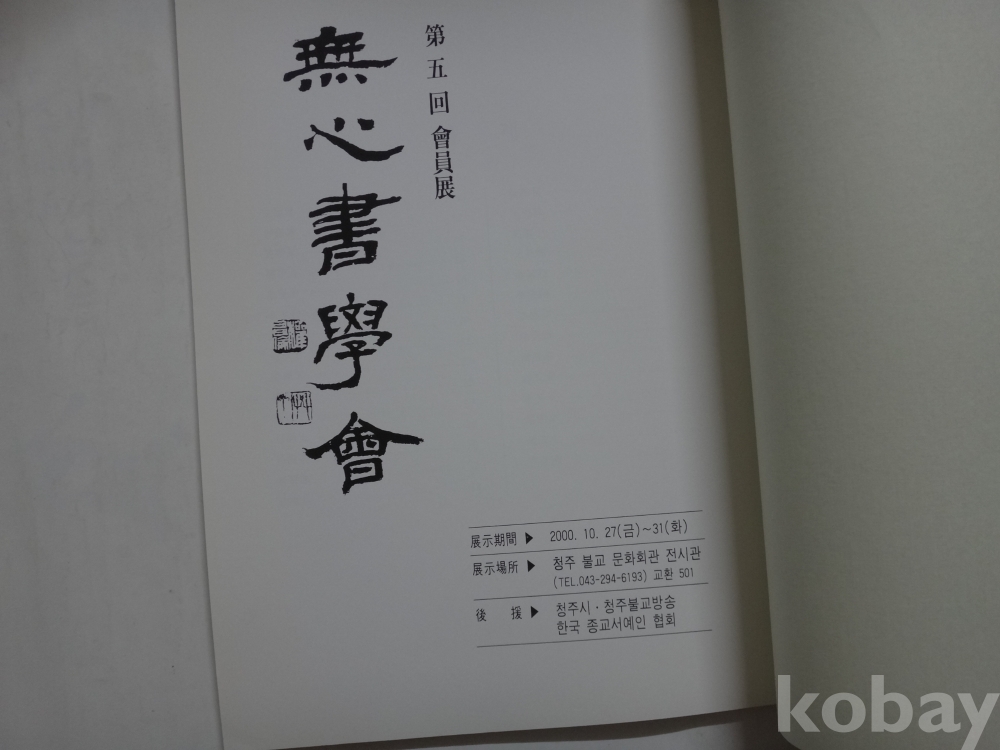 第五回 會員展
無心書學會
展示期間 ▶ 2000. 10. 27(금)~31(화)
展示場所 ▶ 청주 불교 문화회관 전시관
(TEL.043-294-6193) 교환 501
後 援 ▶ 청주시·청주불교방송
한국 종교서예인 협회
kobay